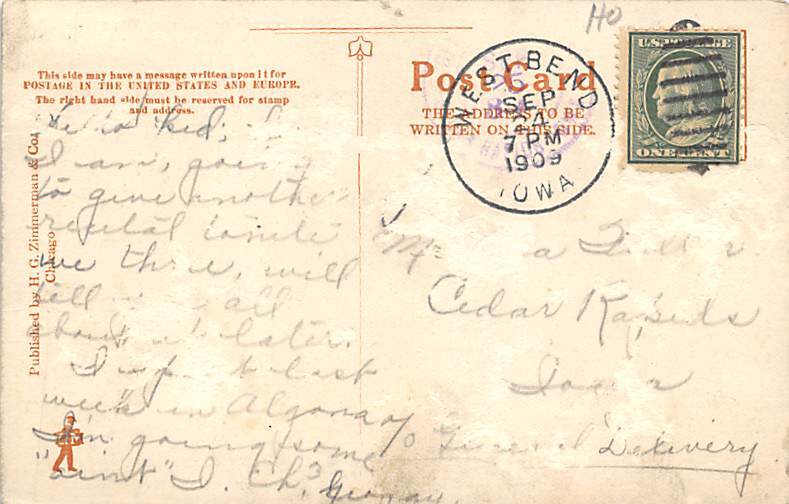 HO
This side may have a message written upon it for
POSTAGE IN THE UNITED STATES AND EUROPE.
The right hand side must be reserved for stamp
and address.
Published by H. G. Zimmerman & Co.
Chicago
Post Card
THE ADDRESS TO BE
WRITTEN ON THIS SIDE.
WEST BEND
SEP
7 PM
1909
IOWA
U.S. POSTAGE
ONE CENT
Hello Kid,
I am, going
to give another
recital tonite
we three, will
tell all
about later.
last
week in Algona
going some
"aint" I. Ch
Cedar Rapids
Iowa
General Delivery